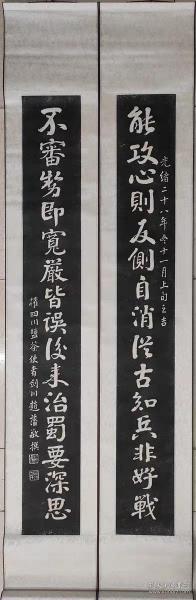 能攻心則反側自消從古知兵非好戰
光緒二十八年冬十一月上旬立吉
不審勢即寬嚴皆誤後來治蜀要深思
權四川鹽茶使者劍川趙藩敬撰